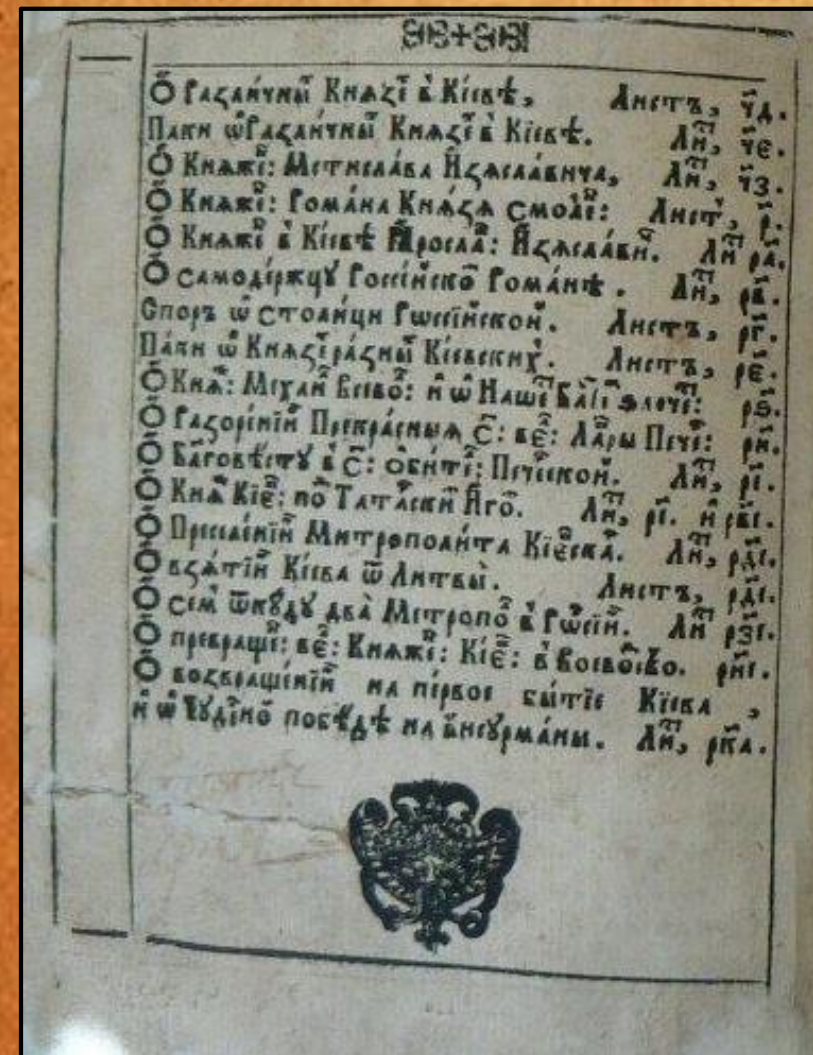 Ѽ Разли́чныⷯ Кнѧзеⷯ в̾ Кі́евѣ, Листъ, ч҃д.
Паки ѡ҆ Разли́чныⷯ Кнѧзеⷯ в̾ Кі́евѣ. Лиⷭ҇, ч҃є.
Ѽ Кнѧже́: Мстисла́ва И҆зѧсла́вича, Лиⷭ҇, ч҃з.
Ѽ Кнѧже́: Рома́на Кнѧ́зѧ Смоле́: Листъ, р҃.
Ѽ Кнѧже́ в̾ Кі́евѣ Ꙗ҆росла́: И҆зѧсла́ви. Лиⷭ҇ р҃а.
Ѽ самоде́ржцꙋ Россі́йскоⷨ Рома́нѣ. Лиⷭ҇, р҃в.
Споръ ѡ҆ столи́ци Рѡссі́йской. Листъ, р҃г.
Па́ки ѡ҆ Кнѧзеⷯ ра́зныⷯ Кі́евскихъ. Листъ, р҃є.
Ѽ Кнѧ́: Михаи́ Всево́: и҆ ѡ҆ Наше́ Ѕлоче́: р҃ѕ.
Ѽ Разоре́нїи Прекра́сныѧ С: ве: Ла́ры Пече́: р҃и.
Ѽ Бл҃говѣстꙋ в̾ С: ѻ҆би́те: Пече́ской. Лиⷭ҇, р҃і.
Ѽ Кнѧ Кіе́: по Тата́ски И҆го. Лиⷭ҇, р҃і. и҆ рв҃і.
Ѽ Преселе́нїи Митрополи́та Кіе́ска. Лиⷭ҇, рд҃і.
Ѽ взѧ́тїи Кі́ева ѿ Литвы̀. Листъ, рд҃і.
Ѽ семъ ѿкꙋ́дꙋ два̀ Митропо в̾ Рѡ́сїи. Лиⷭ҇ рз҃і.
Ѽ превраще́: ве: Кнѧже́: Кіе́: в̾ Воево́во. ри҃і.
Ѽ возвраще́нїи на пе́рвое бытїѐ Кі́ева,
и҆ ѡ҆ Чꙋде́но побѣ́дѣ на бисꙋрма́ны. Лиⷭ҇, рк҃а.